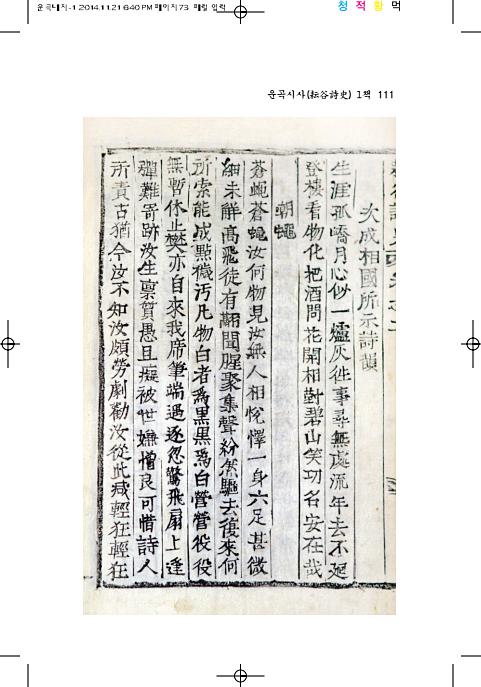 운곡내지-1 2014.11.21 6:40 PM 페이지73
청 적 황 먹
운곡시사(耘谷詩史) 1책 111
次成相國所示詩韻
生涯孤嶠月心似一爐灰往事尋無處流年去不廻
登樓看物化把酒問花開相對碧山笑功名安在哉
嘲蠅
蒼蠅蒼蠅汝何物見汝無人相悅懌一身六足甚微
細未解高飛徒有翮聞腥聚集聲紛然驅去復來何
所索能成點穢汚凡物白者爲黑黑爲白營營役役
無暫休止樊亦自來我席筆端遇逐忽驚飛扇上逢
彈難寄跡汝生禀質愚且癡被世嫌憎良可惜詩人
所責古猶今汝不知汝頗勞劇勸汝從此减輕狂輕狂